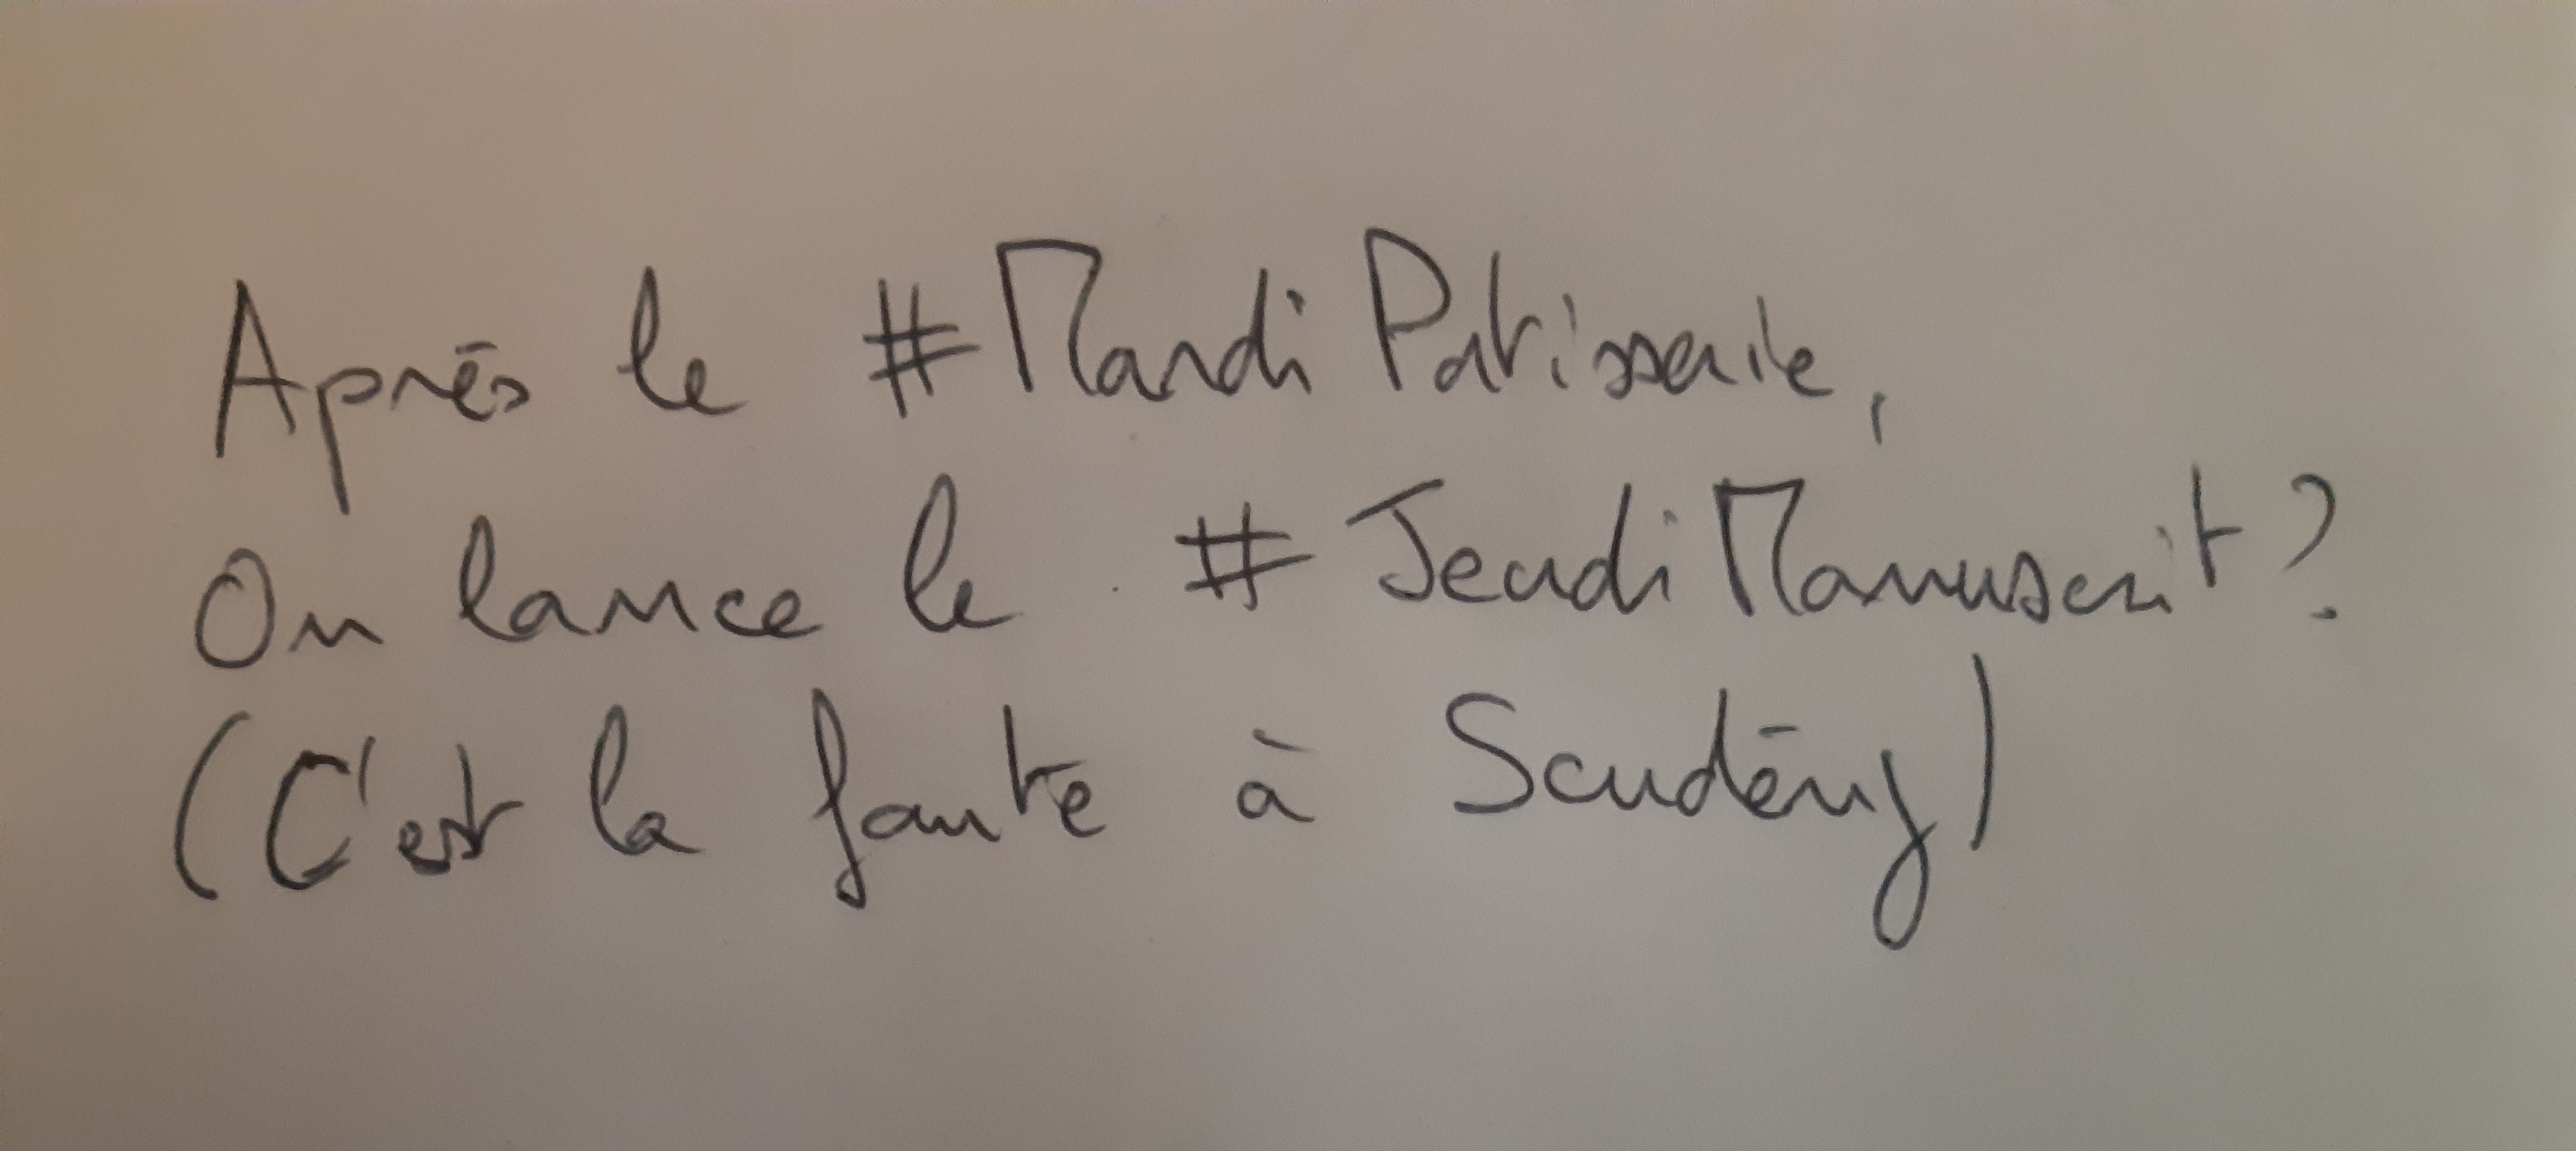 Après le #MardiPatisserie,
On lance le #JeudiManuscrit ?
(C'est la faute à Scudéry)